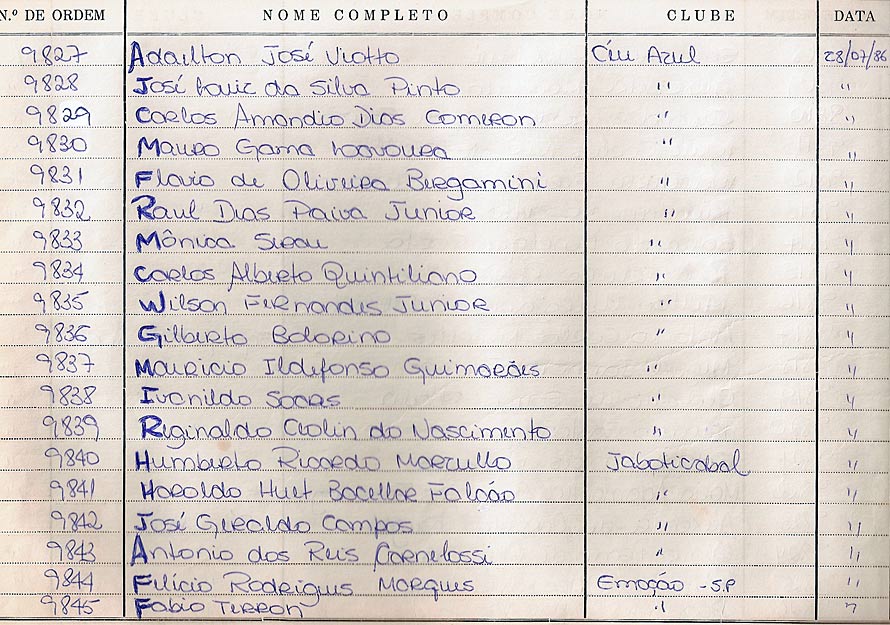 N.º DE ORDEM NOME COMPLETO CLUBE DATA
9827 Adailton José Viotto Céu Azul 28/07/86
9828 José Luiz da Silva Pinto " "
9829 Carlos Amandio Dias Comeron " "
9830 Mauro Gama " "
9831 Flavio de Oliveira Bergamini " "
9832 Raul Dias Paiva Junior " "
9833 Mônica " "
9834 Carlos Alberto Quintiliano " "
9835 Wilson Fernandes Junior " "
9836 Gilberto Bolorino " "
9837 Mauricio Ildefonso Guimarães " "
9838 Ivanildo " "
9839 Reginaldo do Nascimento " "
9840 Humberto Ricardo Marcello Jaboticabal "
9841 Haroldo Huet Bacellar Falcão " "
9842 José Geraldo Campos " "
9843 Antonio dos Reis Carnelossi " "
9844 Felício Rodrigues Marques Emoção - SP "
9845 Fabio Terron " "